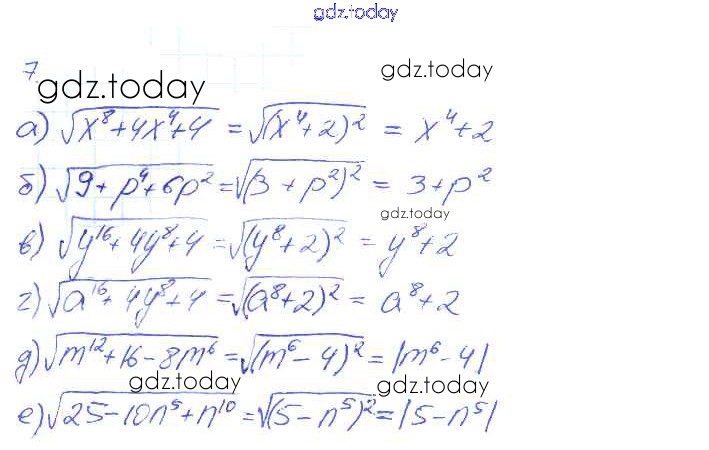 gdz.today
7.
gdz.today gdz.today
а) √(x⁸+4x⁴+4) = √((x⁴+2)²) = x⁴+2
б) √(9+p⁴+6p²) = √((3+p²)²) = 3+p²
gdz.today
в) √(y¹⁶+4y⁸+4) = √((y⁸+2)²) = y⁸+2
г) √(a¹⁶+4y⁸+4) = √((a⁸+2)²) = a⁸+2
д) √(m¹²+16-8m⁶) = √((m⁶-4)²) = |m⁶-4|
gdz.today gdz.today
е) √(25-10n⁵+n¹⁰) = √((5-n⁵)²) = |5-n⁵|